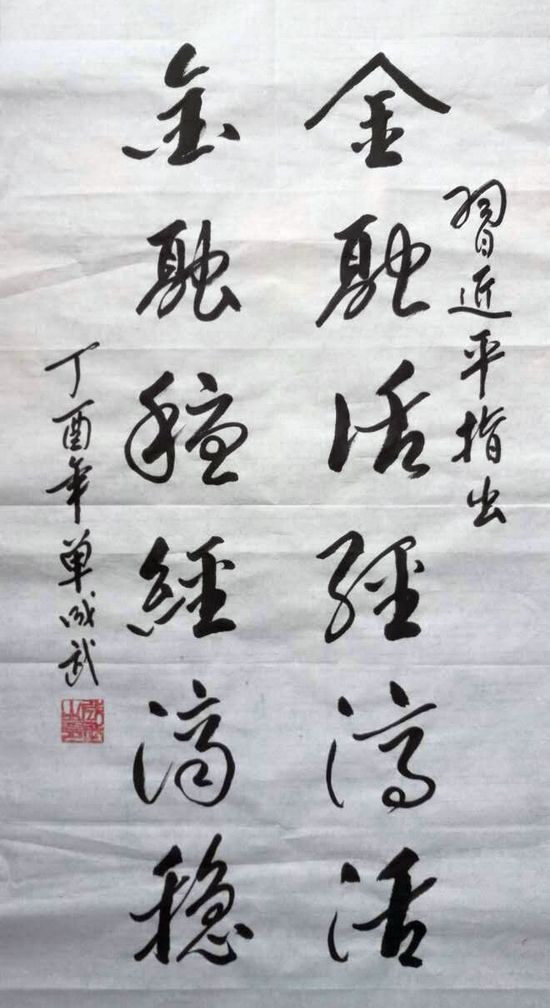 習近平指出
金融活經濟活
金融穩經濟穩
丁酉年单成武